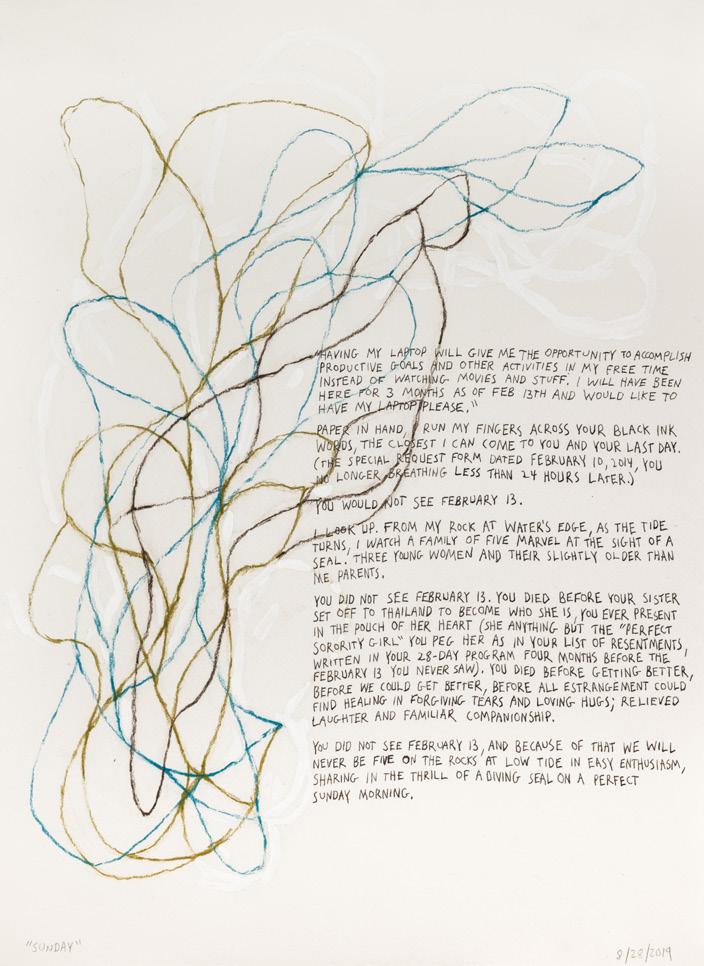 "HAVING MY LAPTOP WILL GIVE ME THE OPPORTUNITY TO ACCOMPLISH
PRODUCTIVE GOALS AND OTHER ACTIVITIES IN MY FREE TIME
INSTEAD OF WATCHING MOVIES AND STUFF. I WILL HAVE BEEN
HERE FOR 3 MONTHS AS OF FEB 13TH AND WOULD LIKE TO
HAVE MY LAPTOP PLEASE."
PAPER IN HAND, I RUN MY FINGERS ACROSS YOUR BLACK INK
WORDS, THE CLOSEST I CAN COME TO YOU AND YOUR LAST DAY.
(THE SPECIAL REQUEST FORM DATED FEBRUARY 10, 2014, YOU
NO LONGER BREATHING LESS THAN 24 HOURS LATER.)
YOU WOULD NOT SEE FEBRUARY 13.
I LOOK UP. FROM MY ROCK AT WATER'S EDGE, AS THE TIDE
TURNS, I WATCH A FAMILY OF FIVE MARVEL AT THE SIGHT OF A
SEAL. THREE YOUNG WOMEN AND THEIR SLIGHTLY OLDER THAN
ME PARENTS.
YOU DID NOT SEE FEBRUARY 13. YOU DIED BEFORE YOUR SISTER
SET OFF TO THAILAND TO BECOME WHO SHE IS, YOU EVER PRESENT
IN THE POUCH OF HER HEART (SHE ANYTHING BUT THE "PERFECT
SORORITY GIRL" YOU PEG HER AS IN YOUR LIST OF RESENTMENTS,
WRITTEN IN YOUR 28-DAY PROGRAM FOUR MONTHS BEFORE THE
FEBRUARY 13 YOU NEVER SAW). YOU DIED BEFORE GETTING BETTER,
BEFORE WE COULD GET BETTER, BEFORE ALL ESTRANGEMENT COULD
FIND HEALING IN FORGIVING TEARS AND LOVING HUGS; RELIEVED
LAUGHTER AND FAMILIAR COMPANIONSHIP.
YOU DID NOT SEE FEBRUARY 13, AND BECAUSE OF THAT WE WILL
NEVER BE FIVE ON THE ROCKS AT LOW TIDE IN EASY ENTHUSIASM,
SHARING IN THE THRILL OF A DIVING SEAL ON A PERFECT
SUNDAY MORNING.
"SUNDAY"
8/28/2019